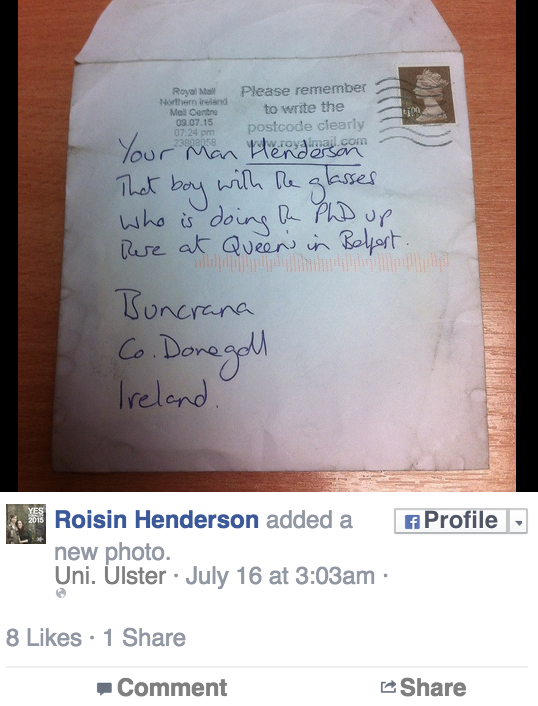 Royal Mail
Northern Ireland
Mail Centre
09.07.15
07:24 pm
23803058
Please remember
to write the
postcode clearly
www.royalmail.com
£1.00
Your Man Henderson
That boy with the glasses
who is doing the PhD up
there at Queen's in Belfast.
Buncrana
Co. Donegall
Ireland.
YES
2015
Roisin Henderson added a
new photo.
Profile
Uni. Ulster · July 16 at 3:03am ·
8 Likes · 1 Share
Comment
Share